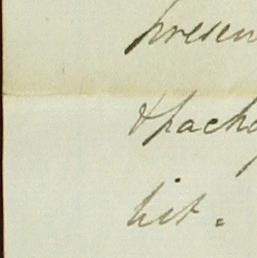 presen
& pack
list.